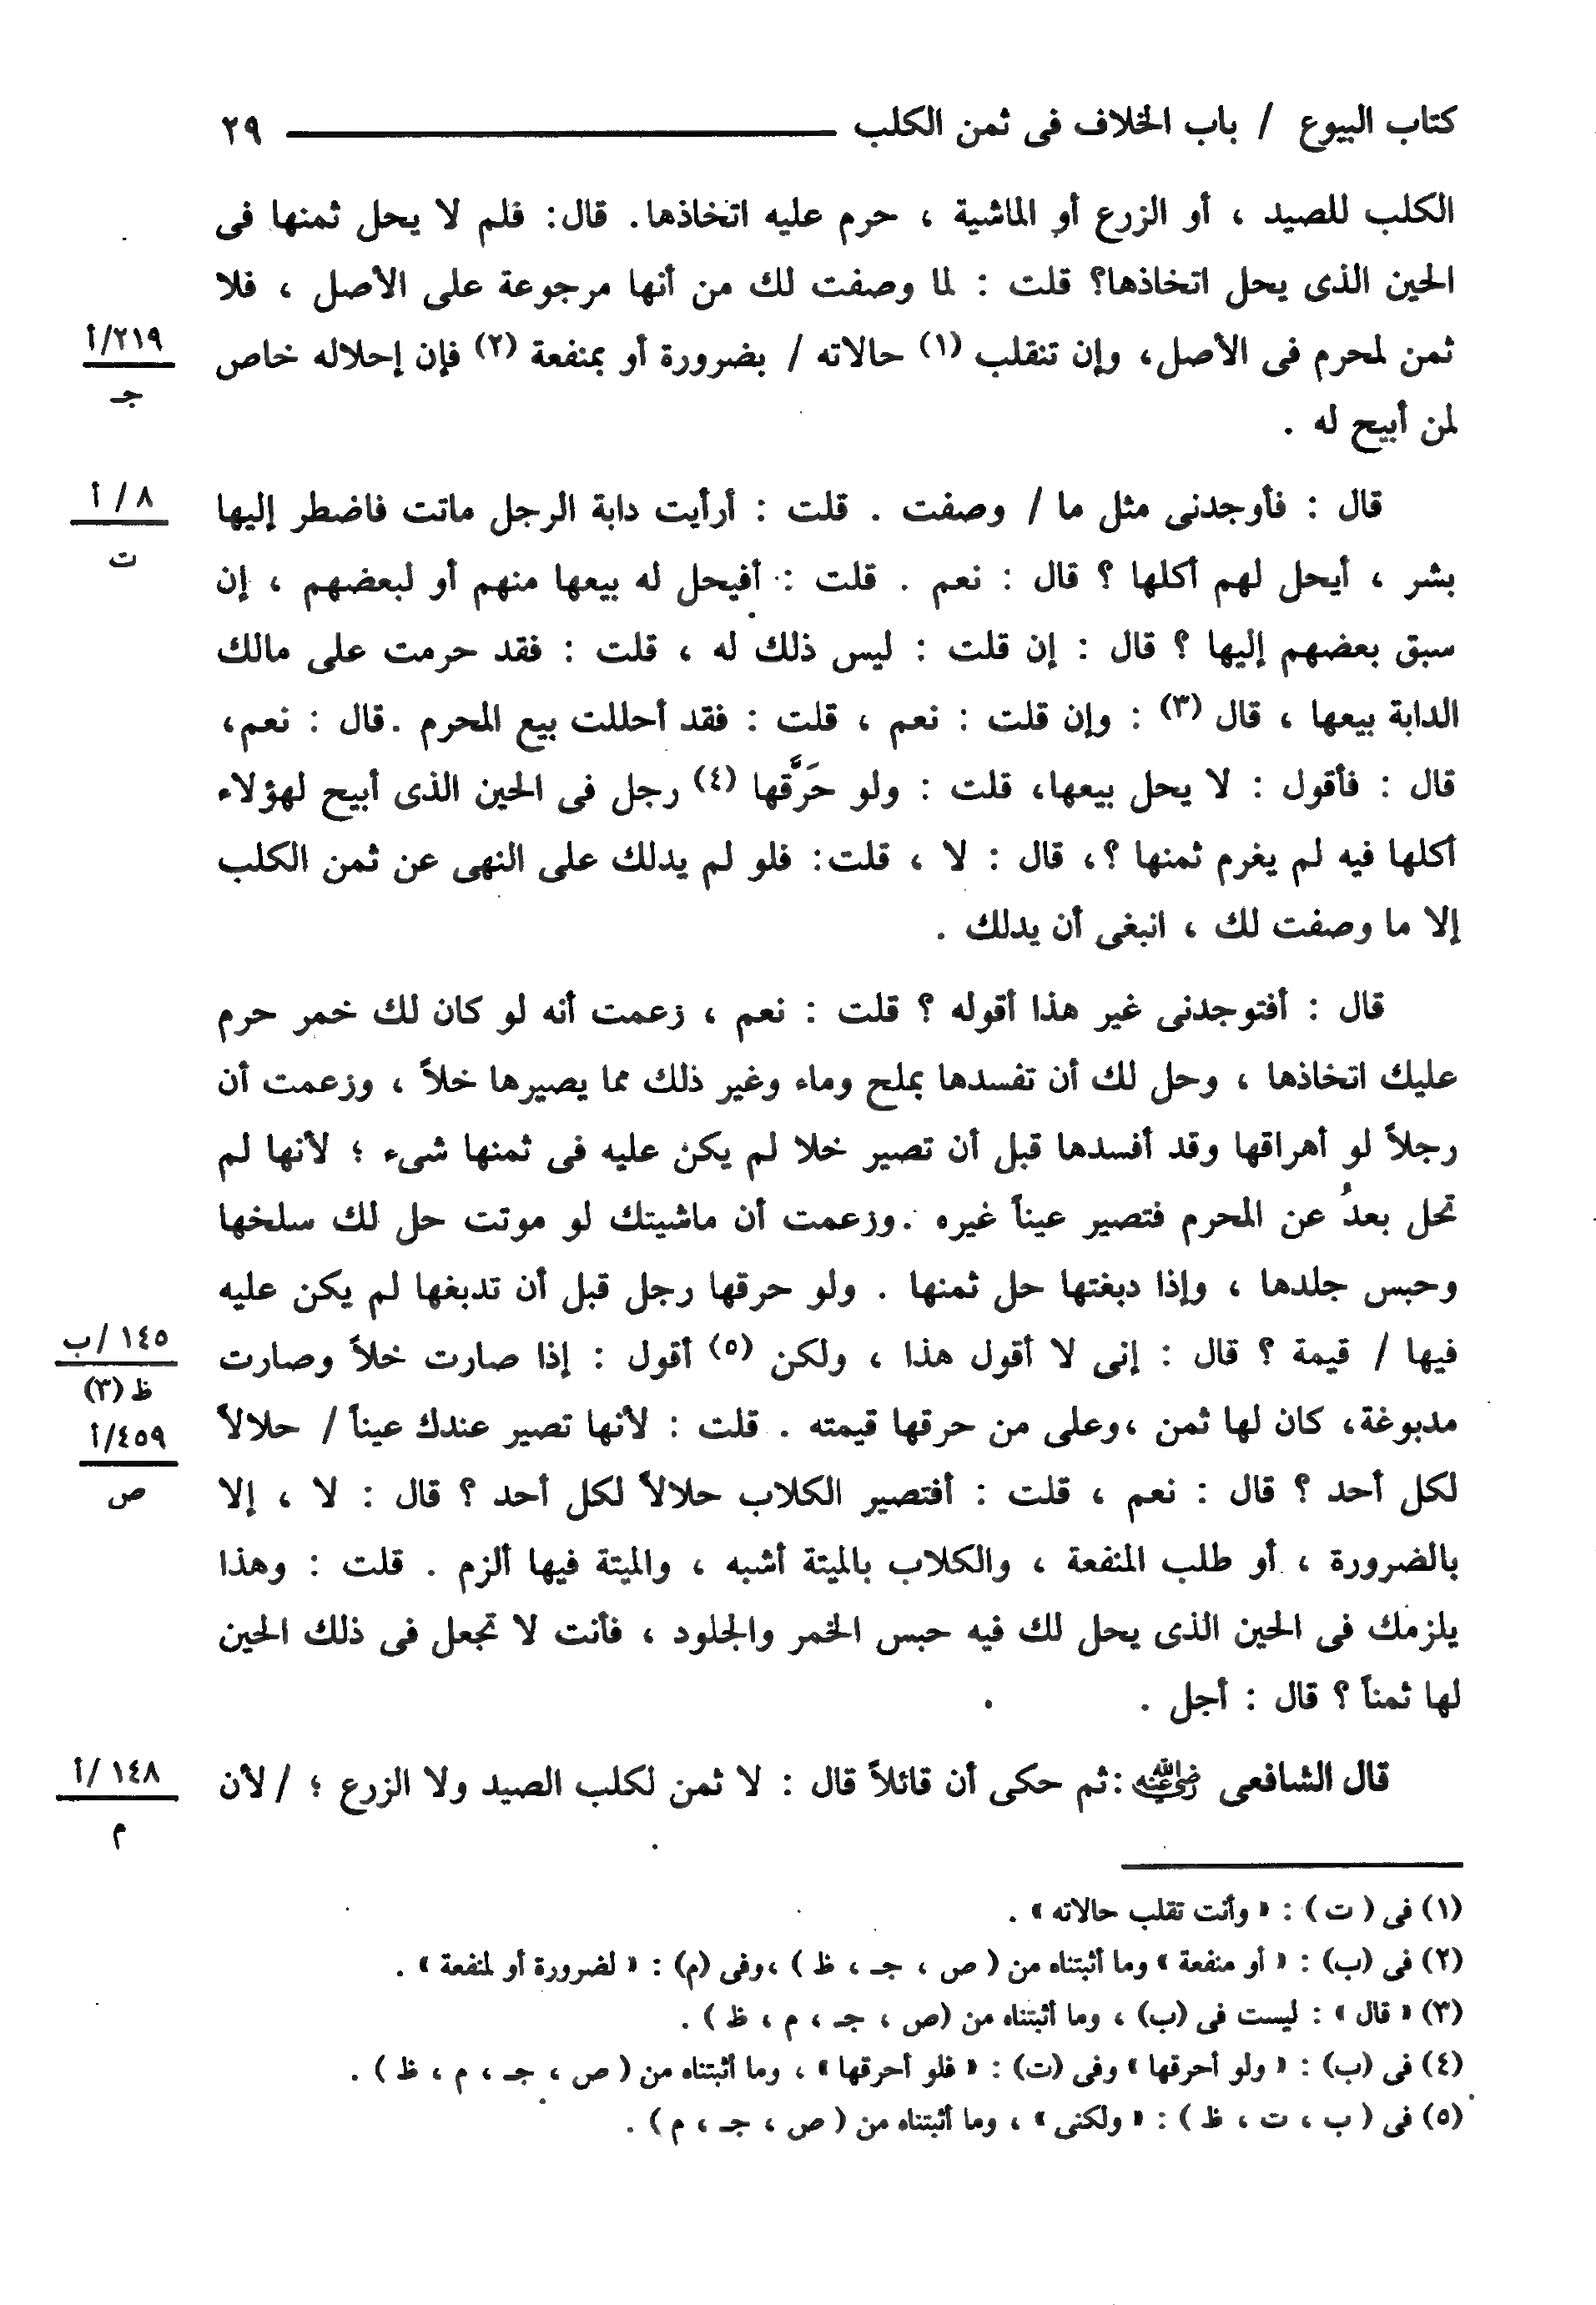 كتاب البيوع / باب الخلاف فى ثمن الكلب ٢٩
الكلب للصيد ، أو الزرع أو الماشية ، حرم عليه اتخاذها. قال: فلم لا يحل ثمنها فى
الحين الذى يحل اتخاذها؟ قلت : لما وصفت لك من أنها مرجوعة على الأصل ، فلا
ثمن لمحرم فى الأصل، وإن تنقلب (١) حالاته / بضرورة أو بمنفعة (٢) فإن إحلاله خاص
٢١٩/أ
جـ
لمن أبيح له .
قال : فأوجدنى مثل ما / وصفت . قلت : أرأيت دابة الرجل ماتت فاضطر إليها
٨ / أ
ت
بشر ، أيحل لهم أكلها ؟ قال : نعم . قلت : أفيحل له بيعها منهم أو لبعضهم ، إن
سبق بعضهم إليها ؟ قال : إن قلت : ليس ذلك له ، قلت : فقد حرمت على مالك
الدابة بيعها ، قال (٣) : وإن قلت : نعم ، قلت : فقد أحللت بيع المحرم .قال : نعم،
قال : فأقول : لا يحل بيعها، قلت : ولو حَرَّقها (٤) رجل فى الحين الذى أبيح لهؤلاء
أكلها فيه لم يغرم ثمنها ؟، قال : لا ، قلت: فلو لم يدلك على النهى عن ثمن الكلب
إلا ما وصفت لك ، انبغى أن يدلك .
قال : أفتوجدنى غير هذا أقوله ؟ قلت : نعم ، زعمت أنه لو كان لك خمر حرم
عليك اتخاذها ، وحل لك أن تفسدها بملح وماء وغير ذلك مما يصيرها خلاً ، وزعمت أن
رجلاً لو أهراقها وقد أفسدها قبل أن تصير خلا لم يكن عليه فى ثمنها شىء ؛ لأنها لم
تحل بعدُ عن المحرم فتصير عيناً غيره .وزعمت أن ماشيتك لو موتت حل لك سلخها
وحبس جلدها ، وإذا دبغتها حل ثمنها . ولو حرقها رجل قبل أن تدبغها لم يكن عليه
فيها / قيمة ؟ قال : إنى لا أقول هذا ، ولكن (٥) أقول : إذا صارت خلاً وصارت
١٤٥ /ب
ظ (٣)
مدبوغة، كان لها ثمن ،وعلى من حرقها قيمته . قلت : لأنها تصير عندك عيناً / حلالاً
٤٥٩/أ
ص
لكل أحد ؟ قال : نعم ، قلت : أفتصير الكلاب حلالاً لكل أحد ؟ قال : لا ، إلا
بالضرورة ، أو طلب المنفعة ، والكلاب بالميتة أشبه ، والميتة فيها ألزم . قلت : وهذا
يلزمك فى الحين الذى يحل لك فيه حبس الخمر والجلود ، فأنت لا تجعل فى ذلك الحين
لها ثمناً ؟ قال : أجل .
قال الشافعى رضي الله عنه :ثم حكى أن قائلاً قال : لا ثمن لكلب الصيد ولا الزرع ؛ /لأن
١٤٨ /أ
م
(١) فى ( ت ) : « وأنت تقلب حالاته » .
(٢) فى (ب) : « أو منفعة » وما أثبتناه من ( ص ، جـ ، ظ ) ،وفى (م) : « لضرورة أو لمنفعة » .
(٣) « قال » : ليست فى (ب) ، وما أثبتناه من (ص ، جـ ، م ، ظ ) .
(٤) فى (ب) : « ولو أحرقها » وفى (ت) : « فلو أحرقها » ، وما أثبتناه من ( ص ، جـ ، م ، ظ ) .
(٥) فى ( ب ، ت ، ظ ) : « ولكنى » ، وما أثبتناه من ( ص ، جـ ، م ) .